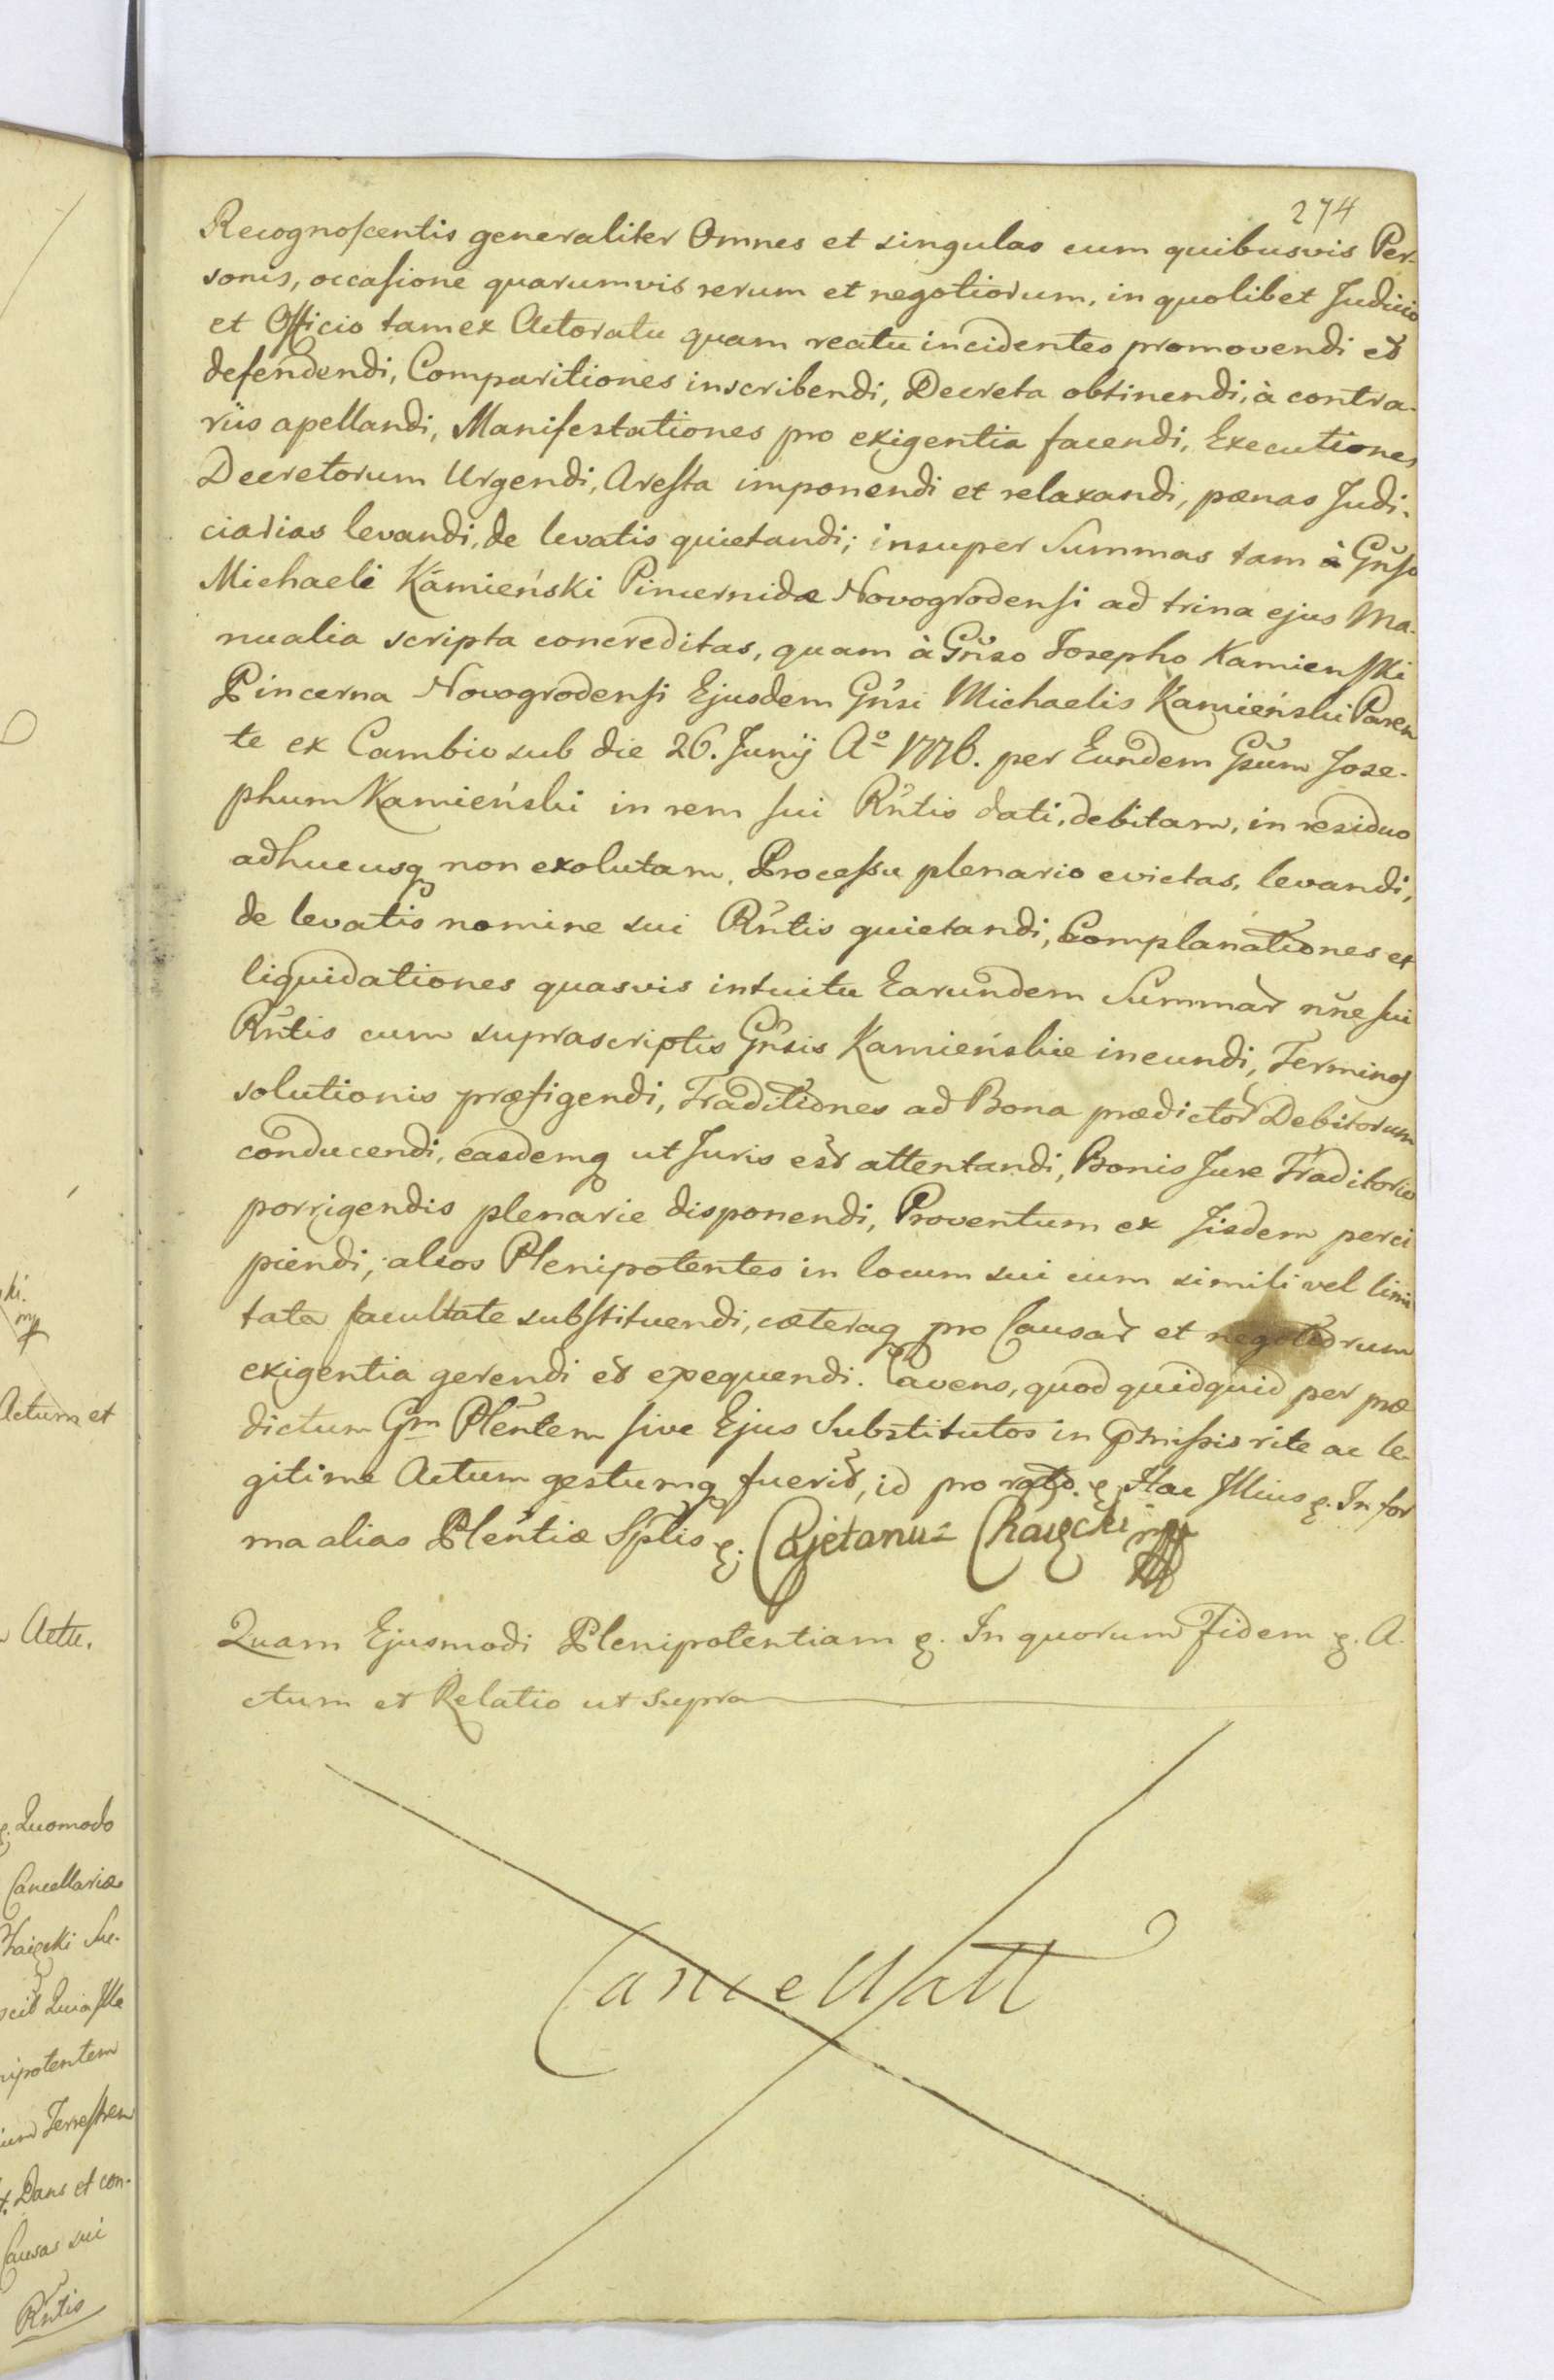 274
Recognoscentis generaliter Omnes et singulas cum quibusvis Per-
sonis, occasione quarumvis rerum et negotiorum, in quolibet Judicio
et Officio tam ex Actoratu quam reatu incidentes promovendi et
defendendi, Comparitiones inscribendi, Decreta obtinendi, à contra-
riis apellandi, Manifestationes pro exigentia facendi, Executiones
Decretorum Urgendi, Aresta imponendi et relaxandi, pœnas Judi-
ciarias levandi, de levatis quietandi; insuper Summas tam à Gnso
Michaele Kamieński Pincernidæ Novogrodensi ad trina ejus Ma-
nualia scripta concreditas, quam à Gnso Josepho Kamienski
Pincerna Novogrodensi Ejusdem Gnsi Michaelis Kamieński Paren
te ex Cambio sub die 26. Junij Aº 1776. per Eundem Gsum Jose-
phum Kamieński in rem sui Rntis dati, debitam, in residuo
adhucusq non exolutam, Processu plenario evictas, levandi,
de levatis nomine sui Rntis quietandi, Complanationes et
liquidationes quasvis intuitu Earundem Summar nne sui
Rntis cum suprascriptis Gnsis Kamieńskie ineundi, Terminos
solutionis præfigendi, Traditiones ad Bona prædictor Debitorum
conducendi, easdemq ut Juris est attentandi, Bonis Jure Traditorio
porrigendis plenarie disponendi, Proventum ex Jisdem perci
piendi, alios Plenipotentes in locum sui cum simili vel limi
tata facultate substituendi, cæteraq pro Causar et negotiorum
exigentia gerendi et exequendi. Cavens, quod quidquid per præ
dictum Gm Plentem sive Ejus Substitutos in pmissis rite ac le-
gitime Actum gestumq fuerit, id pro rato. e. Hac Illius e. In for
ma alias Plentiæ Splis e. Cajetanus Chaięcki mp
Quam Ejusmodi Plenipotentiam e. In quorum Fidem e. A-
ctum et Relatio ut supra
Cancellatt
Actum et
Actu.
e. Quomodo
Cancellariæ
Quia Ille
nipotentem
Terrestrem
Dans et con-
Causas sui
Rntis